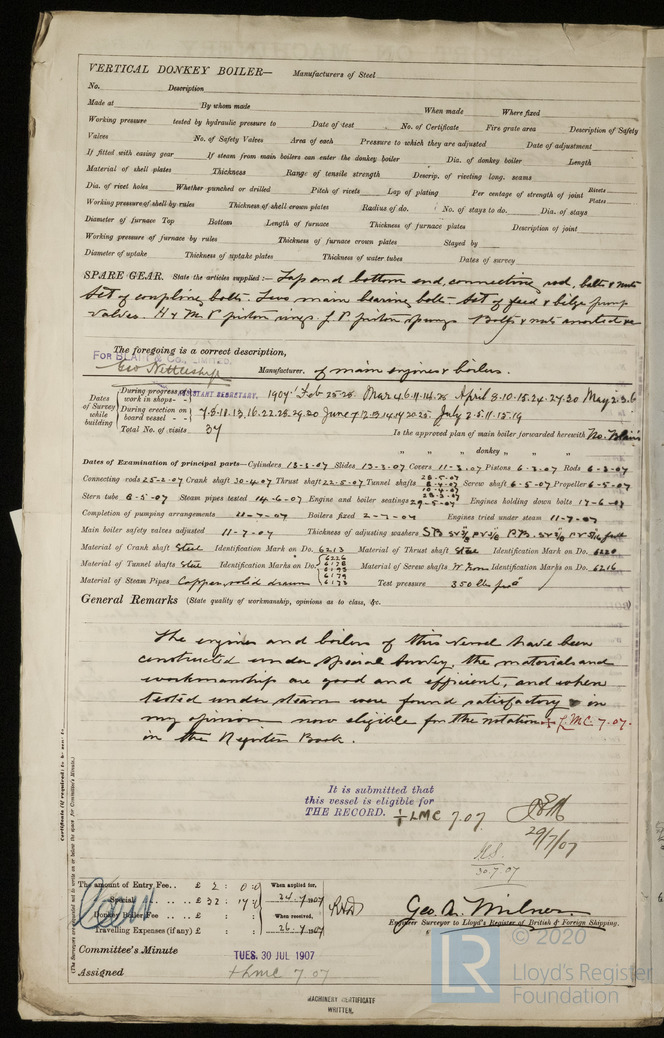 VERTICAL DONKEY BOILER— Manufacturers of Steel
No. Description
Made at By whom made When made Where fixed
Working pressure tested by hydraulic pressure to Date of test No. of Certificate Fire grate area Description of Safety
Valves No. of Safety Valves Area of each Pressure to which they are adjusted Date of adjustment
If fitted with easing gear If steam from main boilers can enter the donkey boiler Dia. of donkey boiler Length
Material of shell plates Thickness Range of tensile strength Descrip. of riveting long. seams
Dia. of rivet holes Whether punched or drilled Pitch of rivets Lap of plating Per centage of strength of joint Rivets Plates
Working pressure of shell by rules Thickness of shell crown plates Radius of do. No. of stays to do. Dia. of stays
Diameter of furnace Top Bottom Length of furnace Thickness of furnace plates Description of joint
Working pressure of furnace by rules Thickness of furnace crown plates Stayed by
Diameter of uptake Thickness of uptake plates Thickness of water tubes Dates of survey
SPARE GEAR. State the articles supplied:— Top and bottom end, connecting rod, bolts & nuts
Set of coupling bolts. Two main bearing bolts. Set of feed & bilge pump
valves. H & M P piston rings L P piston springs Bolts & nuts assorted &c
The foregoing is a correct description,
FOR BLAIR & CO., LIMITED.
Geo Nettleship Manufacturer. of main engines & boilers.
ASSISTANT SECRETARY.
Dates of Survey while building
During progress of work in shops - - 1907: Feb 25.28. Mar 4.6.11.14.28. April 8.10.15.24.27.30 May 2.3.6
During erection on board vessel - - 7.8.11.13.16.22.28.29.30 June 4.7.12.13.14.17.20.25. July 2.5.11.15.19
Total No. of visits 37 Is the approved plan of main boiler forwarded herewith No. Blairs
" " " donkey " "
Dates of Examination of principal parts—Cylinders 13-3-07 Slides 13-3-07 Covers 11-3-07 Pistons 6-3-07 Rods 6-3-07
Connecting rods 25-2-07 Crank shaft 30-4-07 Thrust shaft 22-5-07 Tunnel shafts 28-5-07 8-4-07 10-4-07 28-3-07 Screw shaft 6-5-07 Propeller 6-5-07
Stern tube 6-5-07 Steam pipes tested 14-6-07 Engine and boiler seatings 29-5-07 Engines holding down bolts 17-6-07
Completion of pumping arrangements 11-7-07 Boilers fixed 2-7-07 Engines tried under steam 11-7-07
Main boiler safety valves adjusted 11-7-07 Thickness of adjusting washers
Material of Crank shaft Steel Identification Mark on Do. 6213 Material of Thrust shaft Steel Identification Mark on Do. 6220
Material of Tunnel shafts Steel Identification Marks on Do. 6226 6178 6193 6179 6173 Material of Screw shafts W Iron Identification Marks on Do. 6216
Material of Steam Pipes Copper, solid drawn Test pressure 350 lbs per □"
General Remarks (State quality of workmanship, opinions as to class, &c.
The engines and boilers of this vessel have been
constructed under special survey, the materials and
workmanship are good and efficient, and when
tested under steam were found satisfactory in
my opinion now eligible for the notation + LMC. 7.07.
in the Register Book.
It is submitted that
this vessel is eligible for
THE RECORD. + LMC 7.07.
29/7/07
30.7.07
The amount of Entry Fee.. £ 2 : 0 : 0 When applied for,
Special £ 32 : 17 : 24.7.1907
Donkey Boiler Fee £ : : When received,
Travelling Expenses (if any) £ : : 26.7.1907
Geo A. Milner
Engineer Surveyor to Lloyd's Register of British & Foreign Shipping.
Committee's Minute TUES. 30 JUL 1907
Assigned + LMC 7 07
MACHINERY CERTIFICATE
WRITTEN.
Certificate (if required) to be sent to
(The Surveyors are requested not to write on or below the space for Committee's Minute.)
LR
© 2020
Lloyd's Register
Foundation